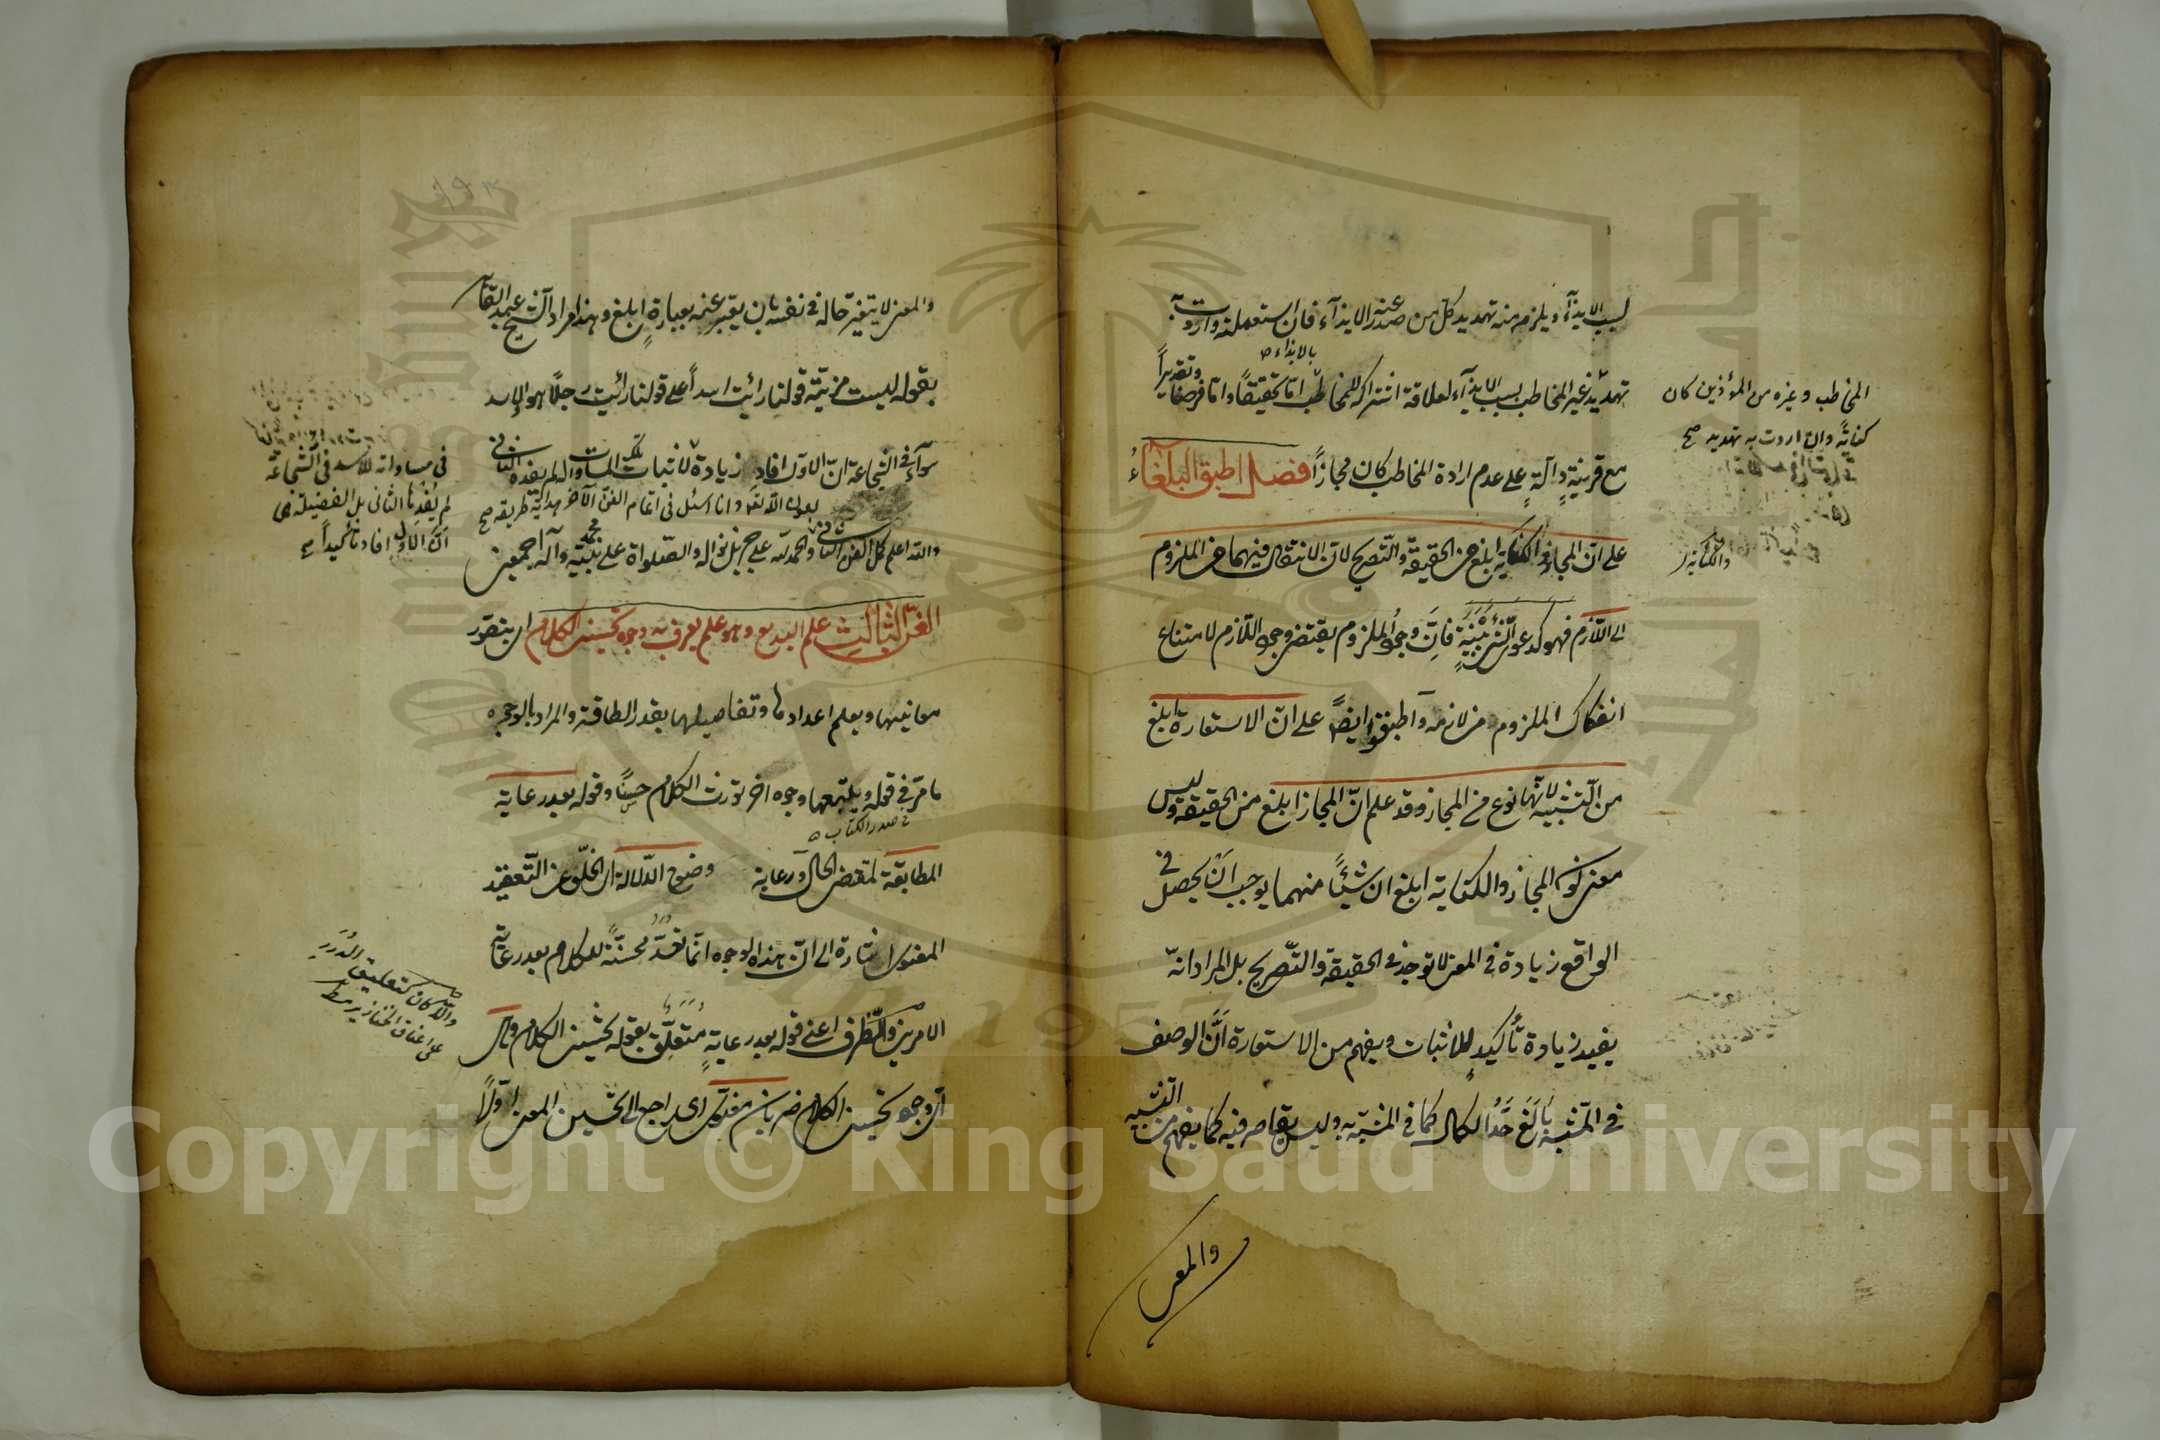 لسبب الايذاء ويلزم منه تهديد كل من صدر عنه الايذاء فان استعملته واردت به
بالايذاء
تهديد غير المخاطب لسبب الايذاء لعلاقة اشتراكه للمخاطب اما تحقيقا واما فرضا وتقديراً
مع قرينةٍ دالّةٍ على عدم ارادة المخاطب كان مجازاً فصل اطبق البلغاءُ
على انّ المجاز والكناية ابلغ من الحقيقة والتصريح لانّ الانتقال فيهما من الملزوم
الى اللازم فهو كدعوى الشئ ببينةٍ فانّ وجود الملزوم يقتضى وجود اللازم لامتناع
انفكاك الملزوم من لازمه واطبقوا ايضاً على انّ الاستعارة ابلغ
من التشبيه لانها نوع من المجاز وقد علم انّ المجاز ابلغ من الحقيقة وليس
معنى كون المجاز والكناية ابلغ ان شيئاً منهما يوجب اَن يحصل فى
الواقع زيادة فى المعنى لا توجد فى الحقيقة والتصريح بل المراد انهّ
يفيد زيادة تأكيدٍ للاثبات ويفهم من الاستعارة اَنّ الوصف
فى المشبه بَالَغَ حَدَّ الكمال كما فى المشبه به وليس بقاصر فيه كما يفهم من التشبيه
والمعنى
المخاطب وغيره من المؤذين كان
كنايةً وان اردت به تهديد صح
والكناية
والمعنى لا يتغيّر حاله فى نفسه بان يعبّر عنه بعبارةٍ ابلغ وهذا مراد الشيخ عبد القاهر
بقوله ليست مزيّة قولنا رأيت اسداً على قولنا رأيت رجلًا هو والاسد
سواء فى الشجاعة انّ الاول افاد زيادة لاثبات تلك المساوات لم يفده الثانى
بعون الله تعالى وانا اسئل فى اتمام الفن الآخر هداية طريقه صح
والله اعلم كمل الفن الثانى والحمد لله على جزيل نواله والصلواة على نبيّه محمد وآله اجمعين
الفن الثالث علم البديع وهو علم يعرف به وجوه تحسين الكلام اى يتصوّر
معانيها ويعلم اعدادها وتفاصيلها بقدر الطاقة والمراد بالوجوه
ما مرّ فى قوله ويتبعها وجوه اخر تورث الكلام حسناً وقوله بعد رعاية
فى صدر الكتاب
المطابقة لمقتضى الحال ورعاية وضوح الدلالة اى الخلوّ عن التّعقيد
المعنوى اشارة الى انّ هذه الوجوه انّما تُعَدُّ محسّنةً للكلام بعد رعاية
الامرين والظرف اعنى قوله بعد رعايةٍ مُتَعلِّق بقوله تحسين الكلام وهى
اى وجوه تحسين الكلام ضربان معنوى اى راجع الى تحسين المعنى اوّلاً
فى مساواته للاسد فى الشجاعة
لم يفدها الثانى بل الفضيلة هى
انّ الاوّل افاد تأكيداً
والّا لكان كتعليق الدُرَرِ
على اعناق الخنازير
Copyright © King Saud University
1957